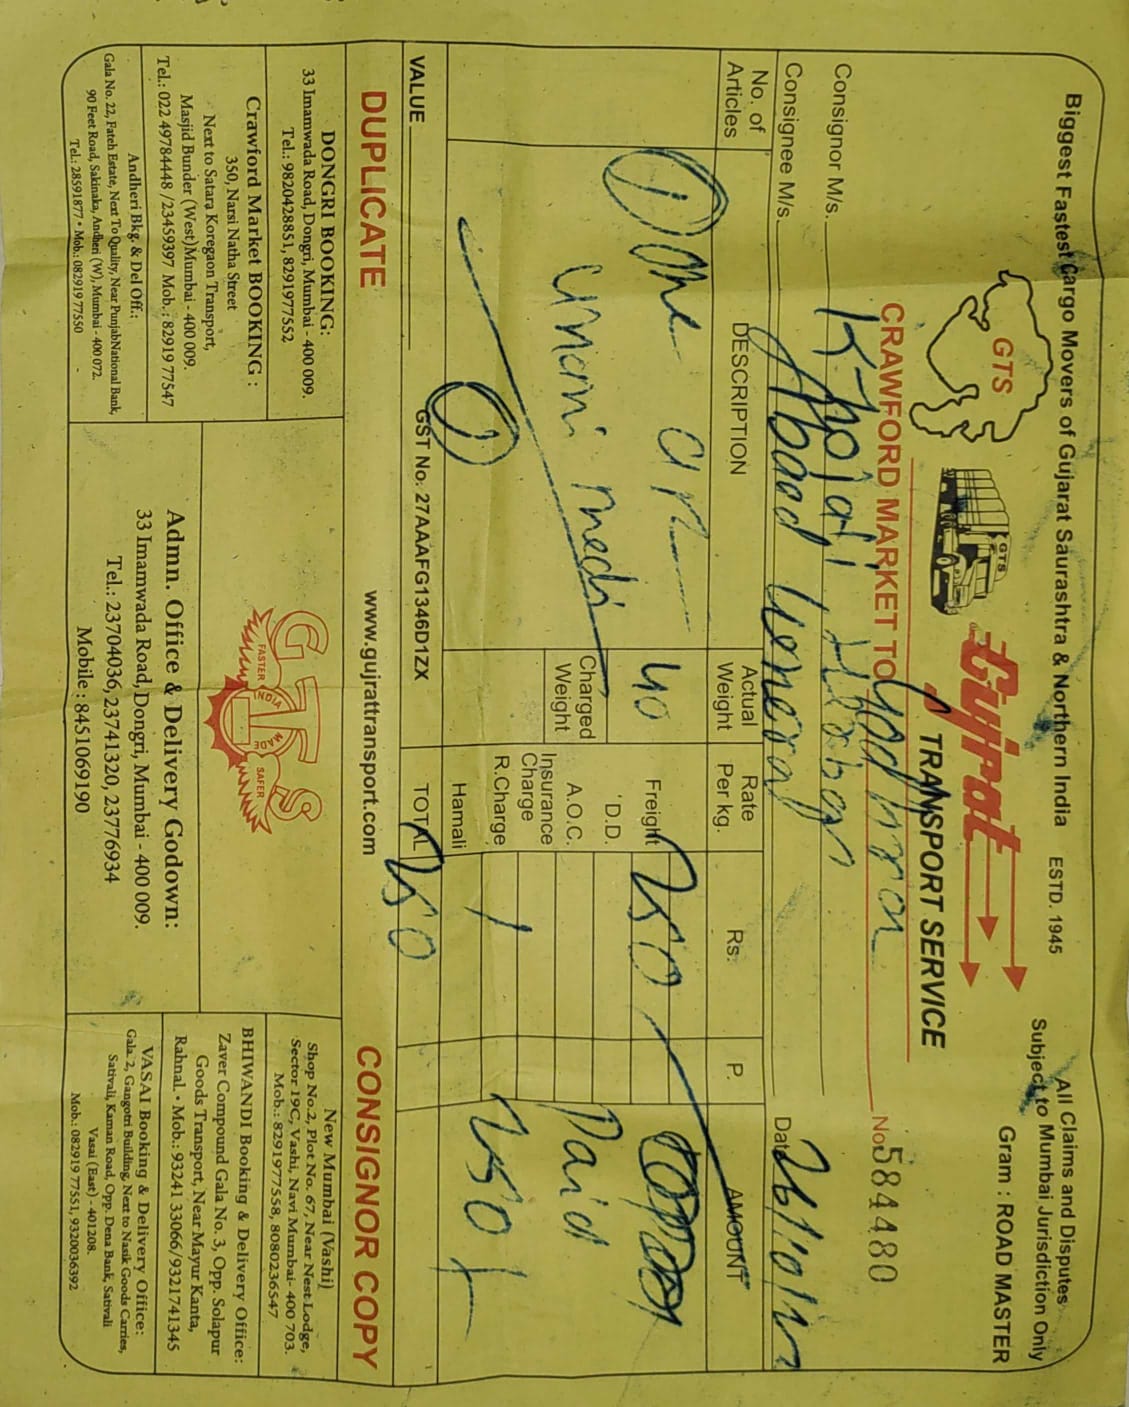 Biggest Fastest Cargo Movers of Gujarat Saurashtra & Northern India ESTD. 1945
All Claims and Disputes
Subject to Mumbai Jurisdiction Only
Gram : ROAD MASTER
GTS
GTS
Gujrat
TRANSPORT SERVICE
CRAWFORD MARKET TO
No. 584480
Consignor M/s.
Consignee M/s. Abad
Date 26/10/
No. of Articles
DESCRIPTION
Actual Weight
Rate Per kg.
Rs.
P.
AMOUNT
① One
unani medi
①
40
Charged Weight
Freight 250
D.D.
A.O.C.
Insurance Charge
R.Charge
Hamali
Paid
250/-
VALUE
GST No. 27AAAFG1346D1ZX
TOTAL 250
DUPLICATE
www.gujrattransport.com
CONSIGNOR COPY
DONGRI BOOKING:
33 Imamwada Road, Dongri, Mumbai - 400 009.
Tel.: 9820428851, 8291977552
Crawford Market BOOKING :
350, Narsi Natha Street
Next to Satara Koregaon Transport,
Masjid Bunder (West)Mumbai - 400 009.
Tel.: 022 49784448 /23459397 Mob.: 82919 77547
Andheri Bkg. & Del Off.:
Gala No. 22, Fateh Estate, Next To Quality, Near PunjabNational Bank,
90 Feet Road, Sakinaka, Andheri (W), Mumbai - 400 072.
Tel.: 28591877 • Mob.: 082919 77550
GTS
FASTER
INDIA
MADE
SAFER
Admn. Office & Delivery Godown:
33 Imamwada Road, Dongri, Mumbai - 400 009.
Tel.: 23704036, 23741320, 23776934
Mobile : 8451069190
New Mumbai (Vashi)
Shop No.2, Plot No. 67, Near Nest Lodge,
Sector 19C, Vashi, Navi Mumbai- 400 703.
Mob.: 8291977558, 8080236547
BHIWANDI Booking & Delivery Office:
Zaver Compound Gala No. 3, Opp. Solapur
Goods Transport, Near Mayur Kanta,
Rahnal. • Mob.: 93241 33066/9321741345
VASAI Booking & Delivery Office:
Gala. 2, Gangotri Building, Next to Nasik Goods Carries,
Sativali, Kaman Road, Opp. Dena Bank, Sativali
Vasai (East) - 401208.
Mob.: 082919 77551, 9320036392